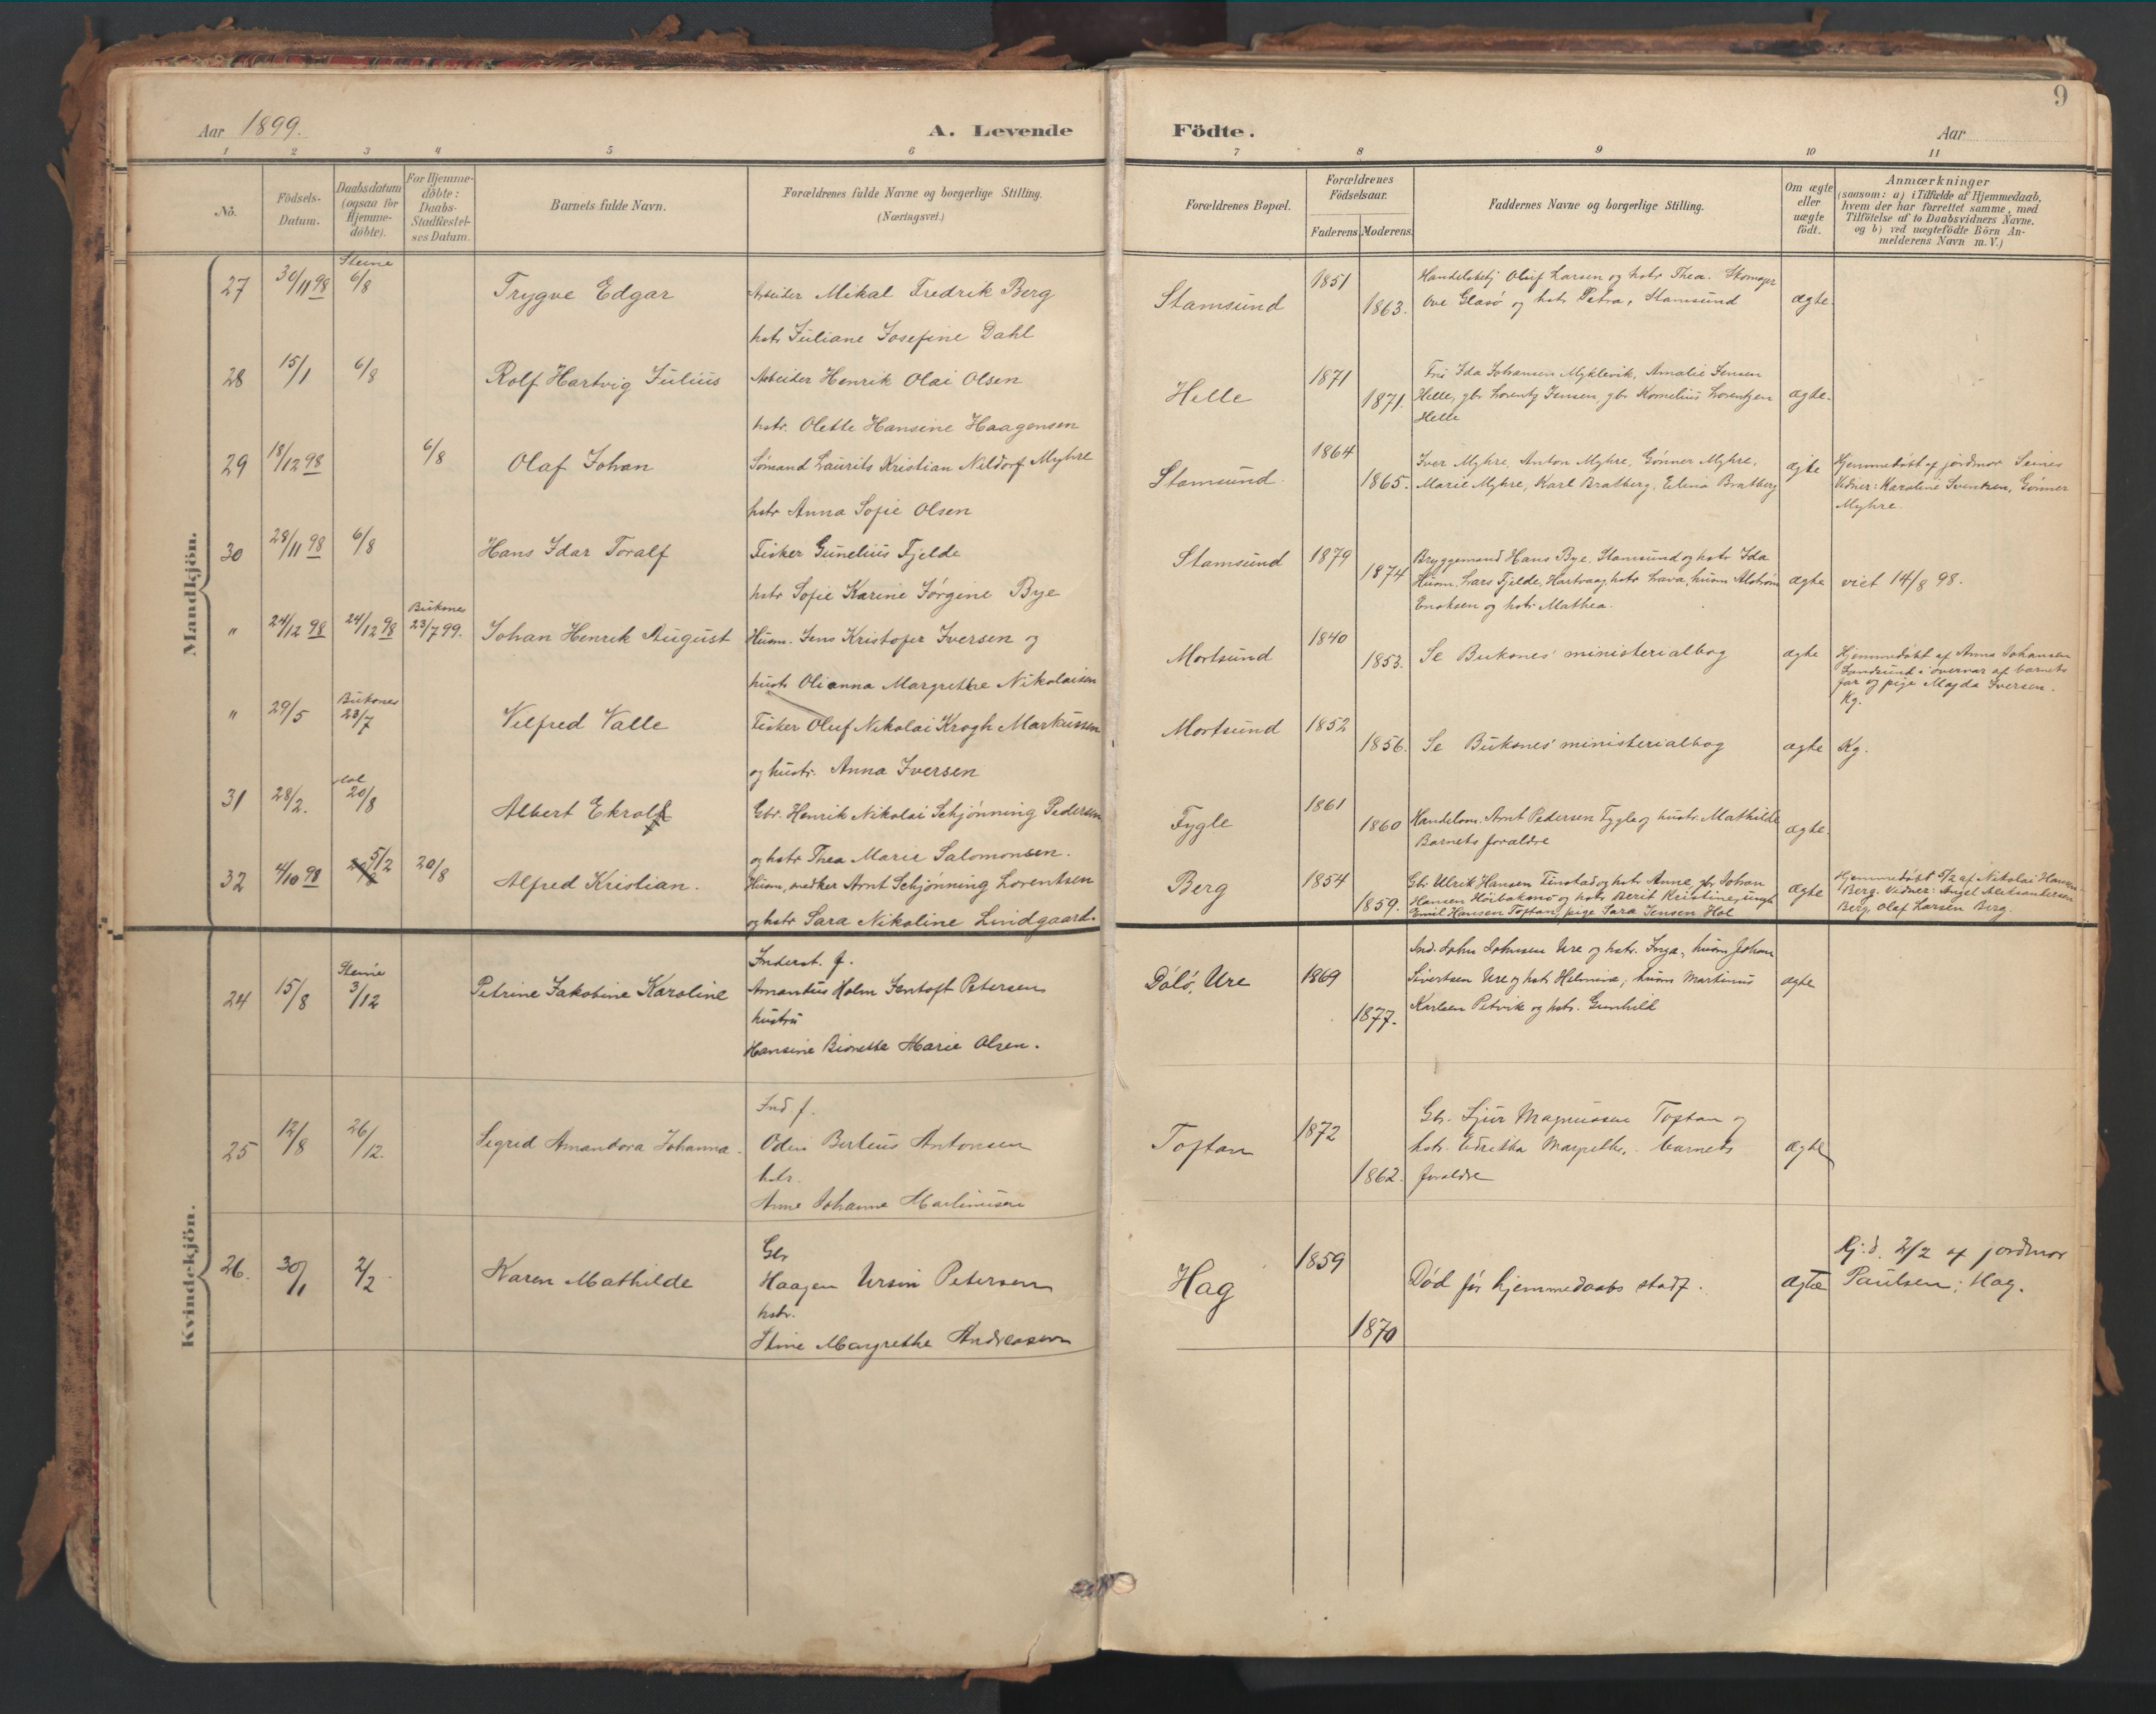 Aar 1899.
A. Levende
Födte.
Aar
9
1 2 3 4 5 6 7 8 9 10 11
No.
Födsels-
Datum.
Daabsdatum
(ogsaa för
Hjemme-
döbte).
For Hjemme-
döbte:
Daabs-
Stadfæstel-
ses Datum.
Barnets fulde Navn.
Forældrenes fulde Navne og borgerlige Stilling.
(Næringsvei.)
Forældrenes Bopæl.
Forældrenes
Födselsaar.
Faderens. Moderens.
Faddernes Navne og borgerlige Stilling.
Om ægte
eller
uægte
födt.
Anmærkninger
(saasom: a) i Tilfælde af Hjemmedaab,
hvem der har forrettet samme, med
Tilföielse af to Daabsvidners Navne.
og b) ved uægtefödte Börn An-
melderens Navn m. V.)
Mandkjön.
27 30/11 98 Steine 6/8 Trygve Edgar Arbeider Mikal Fredrik Berg
hstr Juliane Josefine Dahl
Stamsund 1851 1863. Handelsbetj Oluf Larsen og hstr Thea. Skomager
Ove Glasö og hstr Petra, Stamsund ægte.
28 15/1 6/8 Rolf Hartvig Julius Arbeider Henrik Olai Olsen
hstr. Olette Hansine Haagensen
Helle 1871 1871. Fru Ida Johansen Myklevik, Amalie Jensen
Helle, gbr Lorentz Jensen, gbr Kornelius Lorentzen
Helle ægte.
29 18/12 98 6/8 Olaf Johan Sömand Laurits Kristian Nildorf Myhre
hstr Anna Sofie Olsen
Stamsund. 1864 1865. Iver Myhre, Anton Myhre, Gönner Myhre,
Marie Myhre, Karl Bratberg, Elina Bratberg ægte Hjemmedöbt af jordmor Seines
Vidner: Karoline Sventsen, Gönner
Myhre.
30 28/11 98 6/8 Hans Idar Toralf Fisker Gunelius Fjelde
hstr Sofie Karine Jörgine Bye
Stamsund 1879 1874 Bryggemand Hans Bye, Stamsund og hstr Ida
Husm. Lars Fjelde, Hartvaag, hstr Lava, husm Alström
Enoksen og hstr Mathea. ægte viet 14/8 98.
" 24/12 98 24/12 98 Buksnes 23/7 99. Johan Henrik August Husm. Jens Kristofer Iversen og
hustr Olianna Margrethe Nikolaisen
Mortsund 1840 1853. Se Buksnes' ministerialbog ægte Hjemmedöbt af Anna Johansen
Sandsund i overvær af barnets
far og pige Magda Iversen.
Kg.
" 29/5 Buksnes 23/7 Vilfred Valle Fisker Oluf Nikolai Krogh Markussen
og hustr. Anna Iversen
Mortsund 1852 1856. Se Buksnes' ministerialbog ægte Kg.
31 28/2. Hol 20/8 Albert Ekrolf Gbr. Henrik Nikolai Schjönning Pedersen
og hstr Thea Marie Salomonsen.
Fygle 1861 1860 Handelsm. Arnt Pedersen Fygle og hustr. Mathilde
Barnets forældre ægte.
32 4/10 98 5/2 20/8 Alfred Kristian. Husm, snedker Arnt Schjönning Lorentsen
og hstr Sara Nikoline Lindgaard.
Berg 1854 1859. Gbr Ulrik Hansen Finstad og hstr Anne, gbr Johan
Hansen Höibakmo og hstr Berit Kristine, ungk
Emil Hansen Toftan, pige Sara Jensen Hol ægte Hjemmedöbt 5/2 af Nikolai Hansen
Berg. Vidner: Angel Aleksandersen
Berg, Olaf Larsen Berg.
Kvindekjön.
24 15/8 Steine 3/12 Petrine Jakobine Karoline Inderst. f.
Amandus Holm Jentoft Petersen
hustru
Hansine Bionette Marie Olsen.
Dölö, Ure 1869 1877. Ind. John Johnsen Ure og hstr. Inga, husm Johan
Sivertsen Ure og hstr Helmine, husm Martinus
Karlsen Petvik og hstr. Gunhild ægte
25 12/8 26/12. Sigrid Amandora Johanna. Ind f.
Odin Berteus Antonsen
hstr.
Anne Johanne Martinusen
Toftan 1872 1862. Gbr. Sjur Magnussen Toftan og
hstr. Edrikka Margrethe, barnets
forældre ægte
26. 30/1 2/2 Karen Mathilde Gbr
Haagen Ursin Petersen
hstr.
Stine Margrethe Andreassen
Hag 1859 1870 Död för hjemmedaabs stadf. ægte Hj.d. 2/2 af jordmor
Paulsen, Hag.